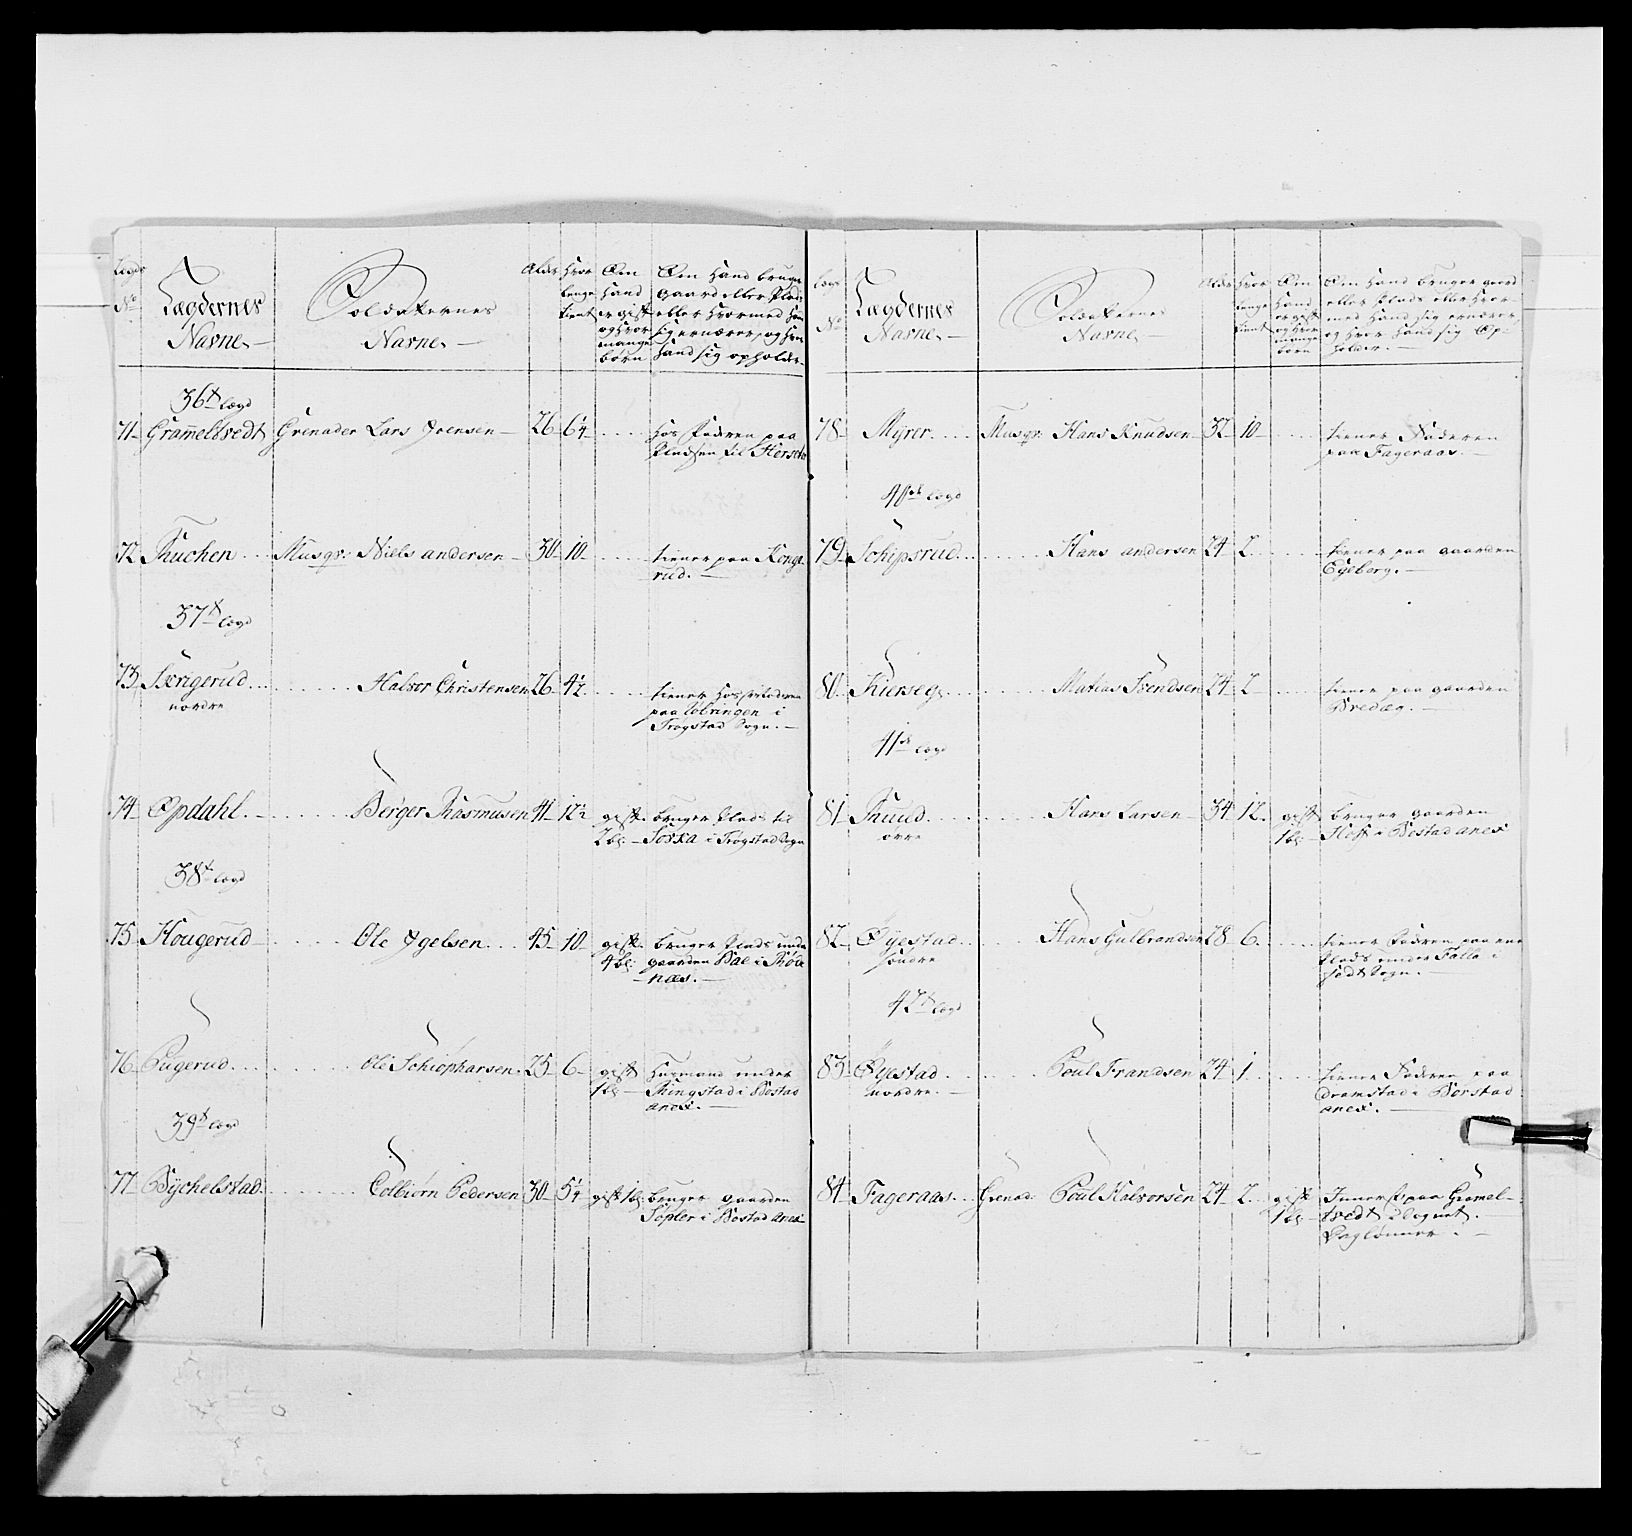 Lægds No
Lægdernes Navne. —
Soldaternes Navne. —
Alder
Hvor lenge tient
Om Hand er gift og Hvor mange børn
Om Hand bruger Gaard eller Plads eller Hvormed Hand sig ernærer, og Hvor Hand sig opholder. —
36te Lægd
71 Gramelsvedt Grenader Lars Joensen — 26 6¼ . . . . hos Faderen paa
Pladsen til Hersetr
72 Kuchen . . . Musqr: Niels andersen — 30 10 . . . . tiener paa Konge-
rud. —
37te Lægd
73 Særigerud . . . . Halvor Christensen 26 4½ . . . . tiener Hos Faderen
nordre paa Løbringen i
Trøgstad Sogn. —
74 Opdahl. . . . . Berger Rasmusen 41 12½ gift bruger Plads til
2 bl: — Soska i Trøgstad Sogn
38te Lægd
75 Hougerud . . . . Ole Igelsen . . . 45 10 gift bruger Plads under
4 bl: gaarden Bae i Røde-
næs. —
76 Pugerud . . . . Ole Schiopharsen. 25 6 gift Husmand under
1 bl: Ringstad i Bostad
anex. —
39te Lægd
77 Bychelstad . . . . Tolbiørn Pedersen 30 5¼ gift 1 bl: bruger gaarden
Sopler i Bostad Anex
Lægs No
Lægdernes Navne —
Soldaternes Navne —
Alder
Hvor lenge tient
Om Hand er gift og Hvor mange børn
Om Hand bruger gaard eller Plads eller Hvor-med Hand sig ernærer, og Hvor Hand sig Op-holder. —
78 Myrer . . . . Musqr: Hans Knudsen 32 10 . . . . tiener Faderen
paa Fageraas. —
40de Lægd
79 Schipsrud . . . Hans andersen 24 2 . . . . tiener paa gaarden
Egeberg. —
80 Kierseg . . . . Matias Svendsen 24 2 . . . . tiener paa gaarden
Bredæg. —
41de Lægd
81 Ruud . . . . Hans Larsen — 34 12 gift bruger gaarden
øvre 1 bl: — Hoff i Bostad anex
82 Øyestad . . . . Hans Gulbrandsen 28 6 . . . . tiener Faderen paa en
søndre Plads under Falla i
Sogn. —
42de Lægd
83 Øyestad . . . . Poul Frandsen 24 1 . . . . tiener Faderen paa
nordre. — Dramstad i Borstad
anex. —
84 Fageraas . . Grenad: Poul Halvorsen 24 2 gift Innerst paa Gramel-
1 bl: tvedt i Sognet.
Daglønner. —